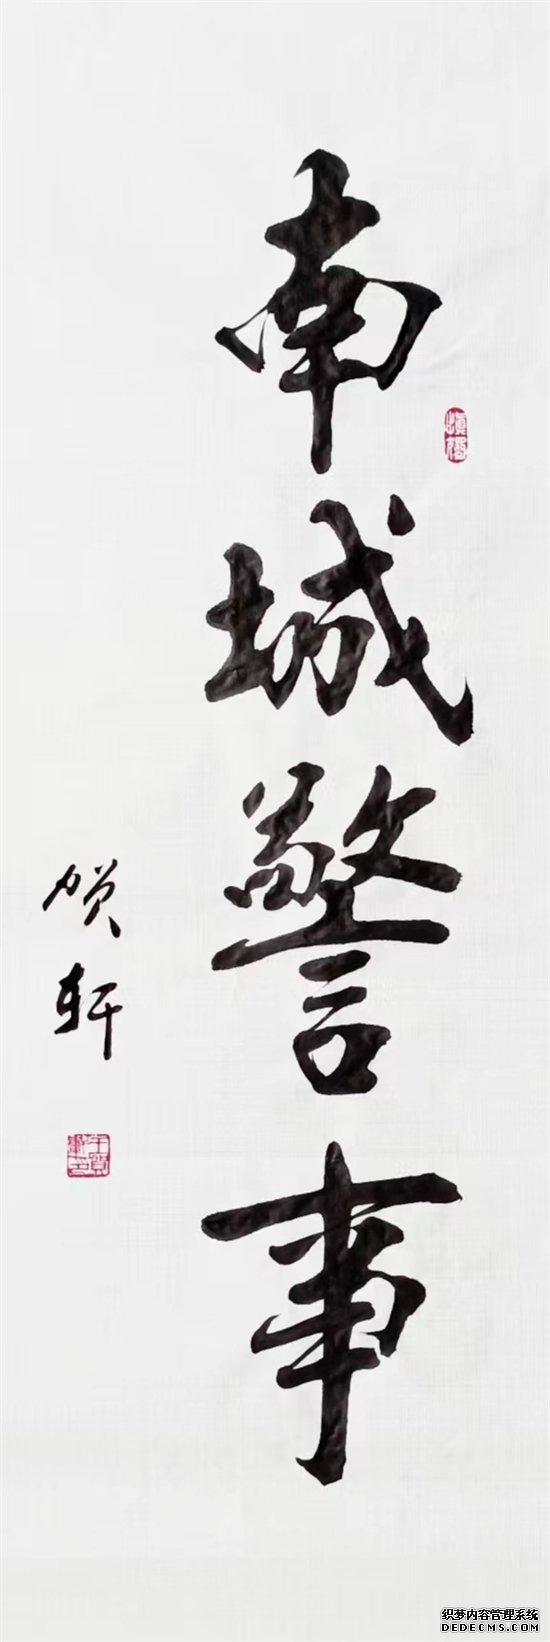 南城警事
贺轩
织梦内容管理系统
DEDECMS.COM